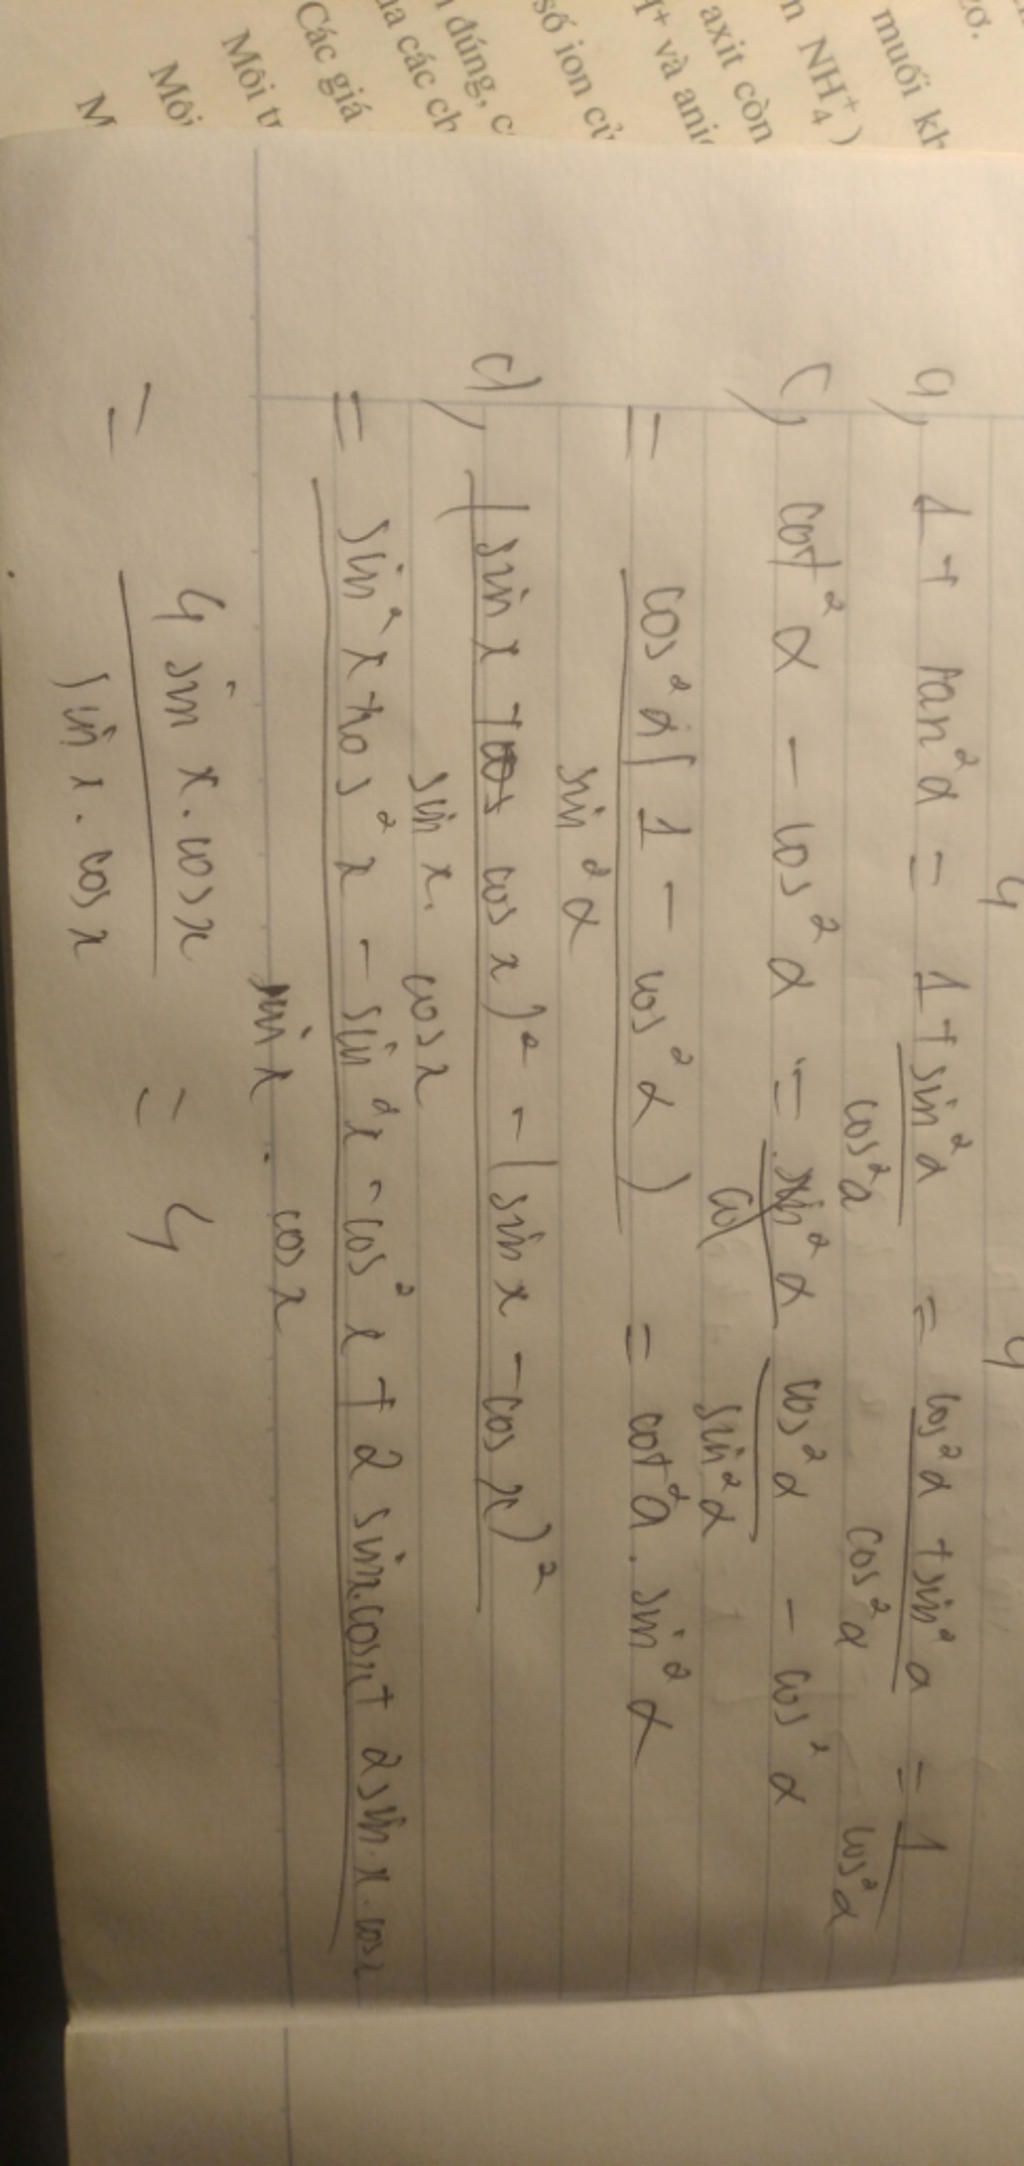 ơ.
muối kh
m NH₄⁺)
axit còn
H⁺ và ani
số ion củ
đúng, c
ua các ch
Các giá
Môi tr
Môi
M
4 4
a, 1 + tan²α = 1 + sin²α / cos²α = cos²α + sin²α / cos²α = 1 / cos²α
c, cot²α - cos²α = cos²α / sin²α - cos²α
= cos²α(1 - cos²α) / sin²α = cot²α . sin²α
d, (sin x + cos x)² - (sin x - cos x)² / sin x . cos x
= sin²x + cos²x - sin²x - cos²x + 2 sinx.cosx + 2 sin.x.cosx / sin x . cos x
= 4 sin x . cos x / sin x . cos x = 4